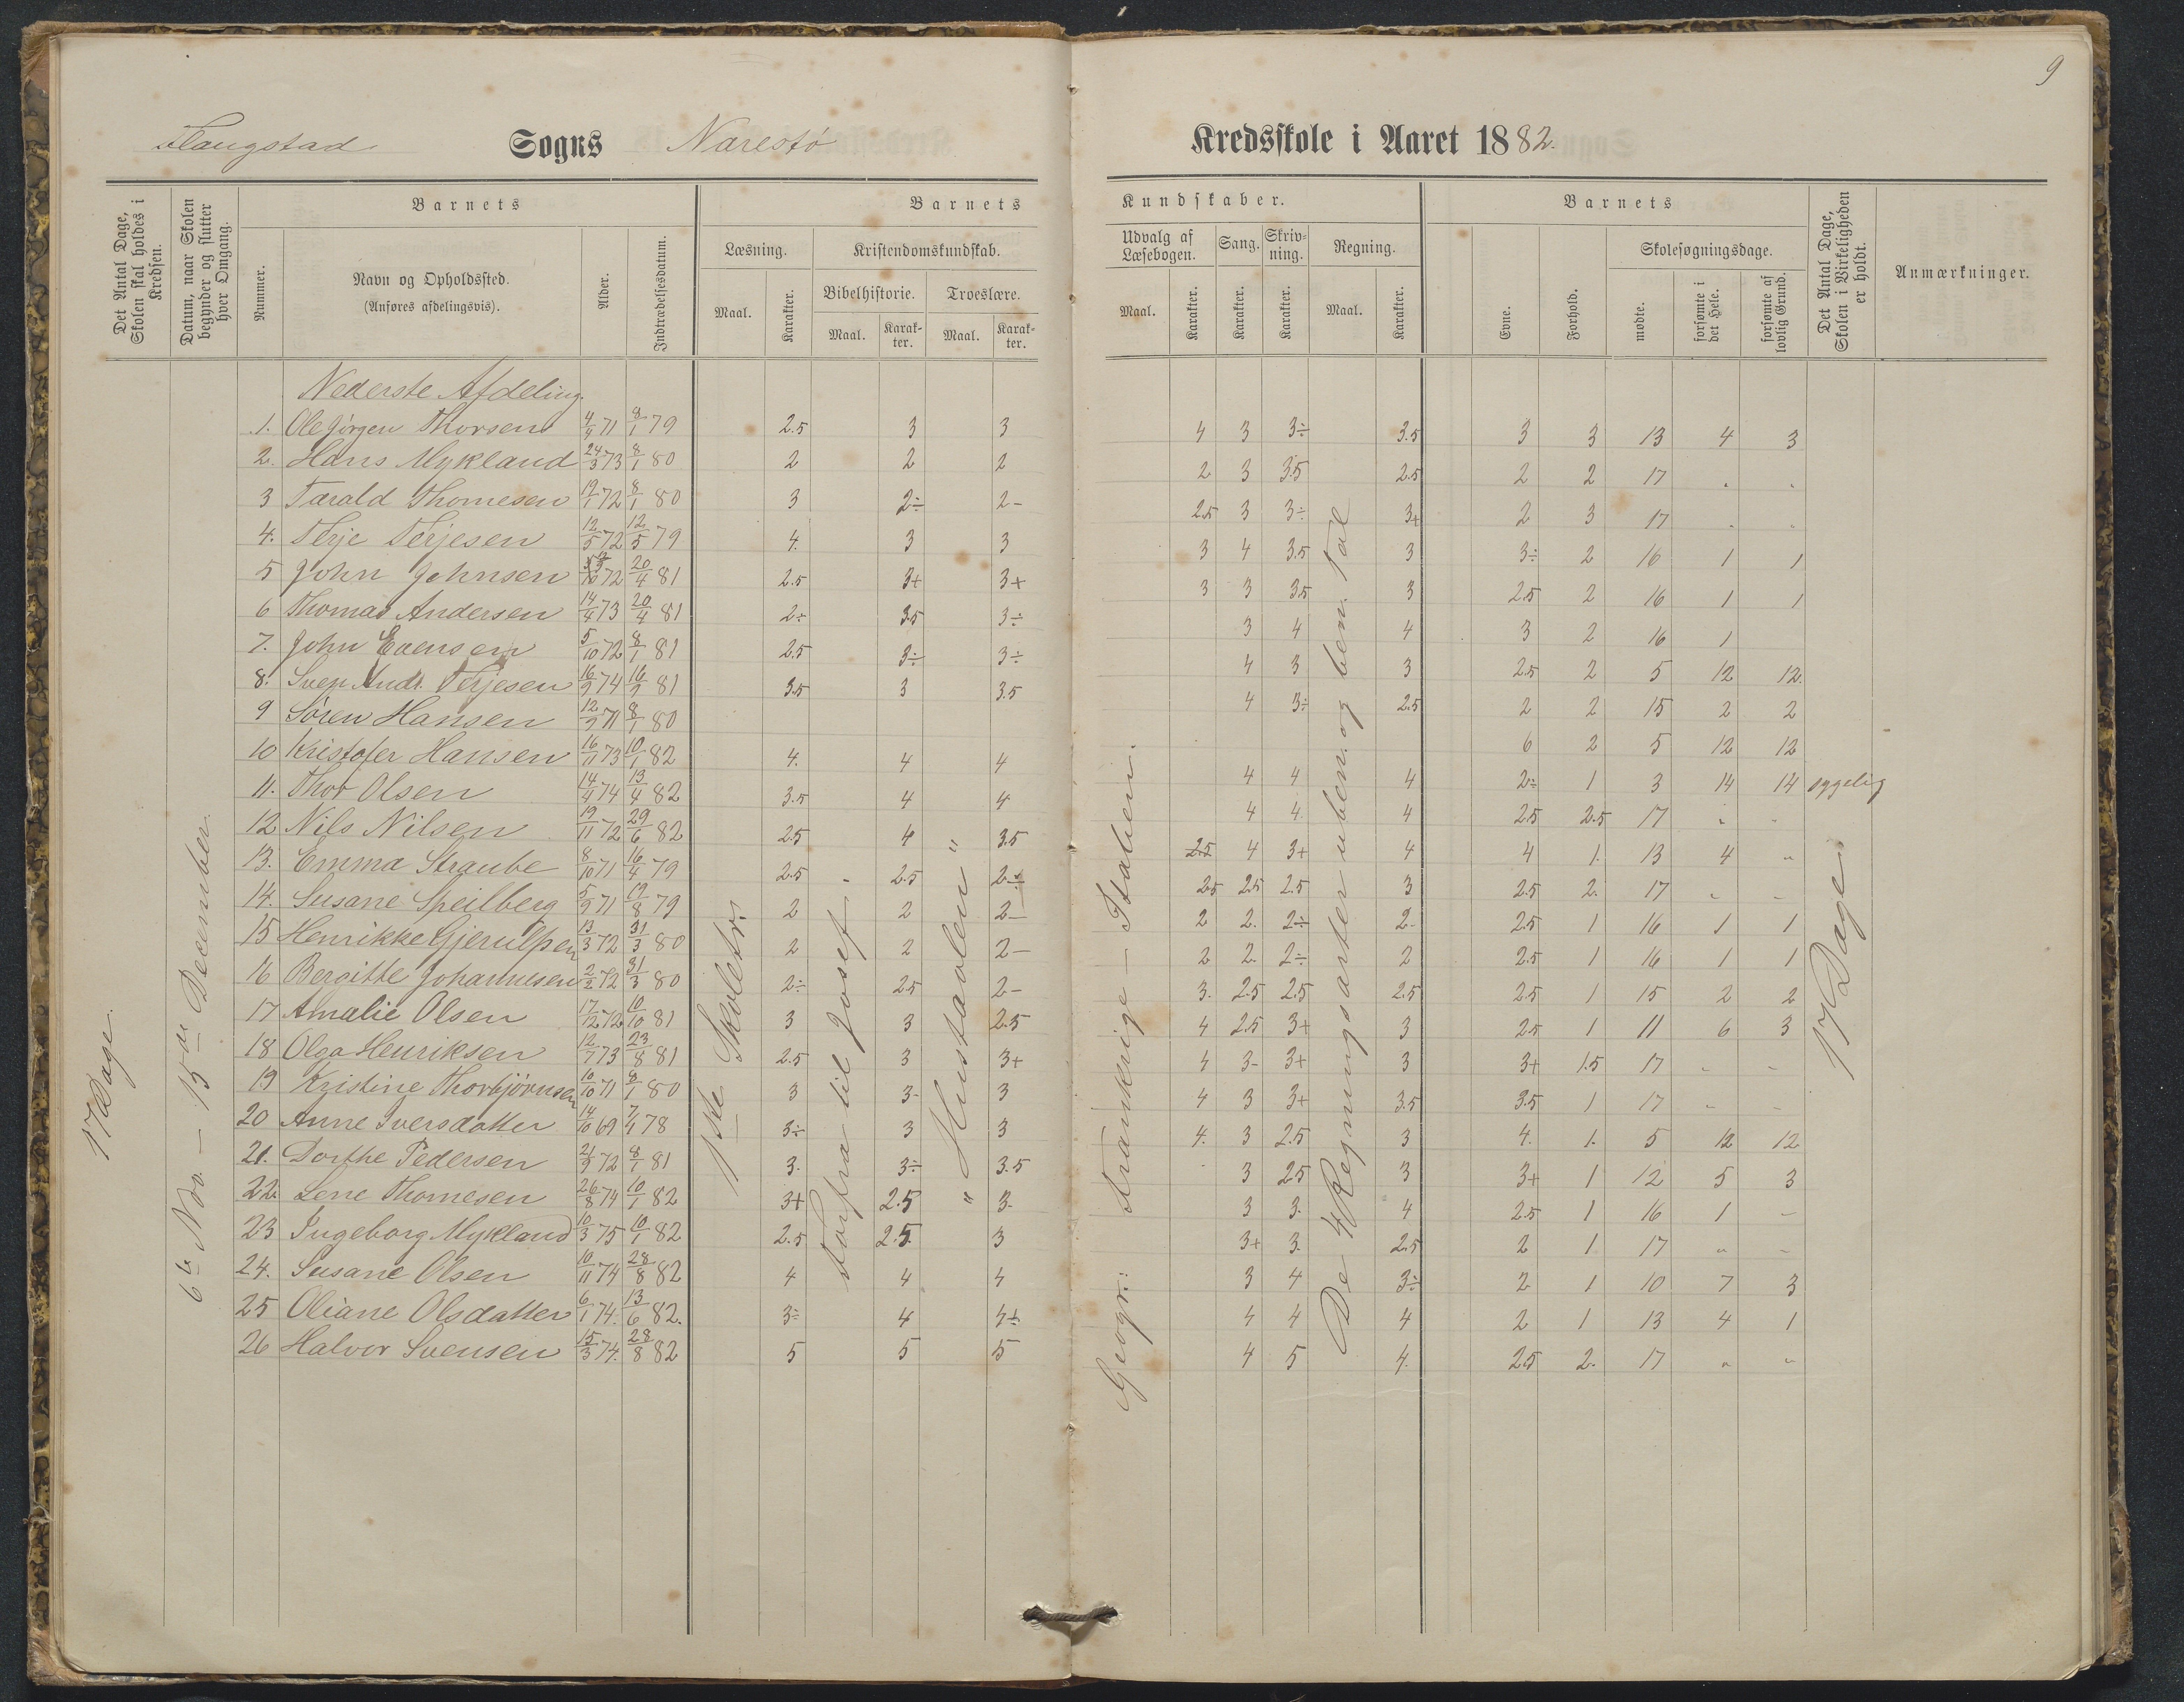 9
Flangstad Sogns Narestø Kredsskole i Aaret 1882.
Det Antal Dage, Skolen skal holdes i Kredsen.
Datum, naar Skolen begynder og slutter hver Omgang.
Barnets
Nummer.
Navn og Opholdssted. (Anføres afdelingsvis).
Alder.
Indtrædelsesdatum.
Barnets Kundskaber.
Læsning. Maal. Karakter.
Kristendomskundskab.
Bibelhistorie. Maal. Karakter.
Troeslære. Maal. Karakter.
Udvalg af Læsebogen. Maal. Karakter.
Sang. Karakter.
Skrivning. Karakter.
Regning. Maal. Karakter.
Barnets
Evne. Forhold.
Skolesøgningsdage.
mødte. forsømte i det Hele. forsømte af lovlig Grund.
Det Antal Dage, Skolen i Virkeligheden er holdt.
Anmærkninger.
17 Dage.
6te Nov. – 15de December.
1ste Skoletr.
forfra til Josef.
"Hustavlen"
Geogr: Frankrige – Italien.
De 4 Regningsarter uben. og ben. Tal
17 Dage
Nederste Afdeling.
1. Ole Jörgen Thorsen 4/4 71 8/1 79 2.5 3 3 4 3 3÷ 3.5 3 3 13 4 3
2. Hans Mykland 24/3 73 8/1 80 2 2 2 2 3 3.5 2.5 2 2 17 " "
3 Tarald Thomesen 19/1 72 8/1 80 3 2÷ 2- 2.5 3 3÷ 3+ 2 3 17 " "
4. Terje Terjesen 12/5 72 12/5 79 4. 3 3 3 4 3.5 3 3÷ 2 16 1 1
5 John Johnsen 72 20/4 81 2.5 3+ 3+ 3 3 3.5 3 2.5 2 16 1 1
6 Thomas Andersen 14/4 73 20/4 81 2÷ 3.5 3÷ 3 4 4 3 2 16 1
7. John Evensen 5/10 72 8/1 81 2.5 3÷ 3÷ 4 3 3 2.5 2 5 12 12.
8. Sven Andr. Terjesen 16/9 74 16/9 81 3.5 3 3.5 4 3÷ 2.5 2 2 15 2 2
9 Sören Hansen 12/9 71 8/1 80 6 2 5 12 12
10 Kristofer Hansen 16/11 73 10/1 82 4. 4 4 4 4 4 2÷ 1 3 14 14 sygelig
11. Thor Olsen 14/4 74 13/4 82 3.5 4 4 4 4. 4 2.5 2.5 17 " "
12 Nils Nilsen 19/11 72 29/6 82 2.5 4 3.5 2.5 4 3+ 4 4 1. 13 4 "
13. Emma Straube 8/10 71 16/4 79 2.5 2.5 2÷ 2.5 2.5 2.5 3 2.5 2. 17 " "
14. Susane Speilberg 5/9 71 19/8 79 2 2 2- 2 2. 2÷ 2- 2.5 1 16 1 1
15 Henrikke Gjerulfsen 13/3 72 31/3 80 2 2 2- 2 2. 2÷ 2 2.5 1 16 1 1
16 Bergitte Johannesen 2/2 72 31/3 80 2÷ 2.5 2- 3. 2.5 2.5 2.5 2.5 1 15 2 2
17 Amalie Olsen 17/12 72 10/10 81 3 3 2.5 4 2.5 3+ 3 2.5 1 11 6 3
18 Olga Henriksen 12/7 73 23/8 81 2.5 3 3+ 4 3- 3+ 3 3+ 1.5 17 " "
19 Kristine Thorbjörnsen 10/10 71 8/1 80 3 3- 3 4 3 3+ 3.5 3.5 1 17 " "
20 Anne Iversdatter 14/10 69 7/4 78 3÷ 3 3 4. 3 2.5 3 4. 1. 5 12 12
21. Dorthe Pedersen 21/9 72 8/1 81 3. 3÷ 3.5 3 2.5 3 3+ 1 12 5 3
22. Lene Thomesen 26/8 74 10/1 82 3+ 2.5 3- 3 3. 4 2.5 1 16 1 –
23 Ingeborg Mykland 10/3 75 10/1 82 2.5 2.5. 3 3+ 3. 2.5 2 1 17 " –
24. Susane Olsen 10/11 74 28/8 82 4 4 4 3 4 3÷ 2 1 10 7 3
25 Oliane Olsdatter 6/1 74. 13/6 82. 3÷ 4 4÷ 4 4 4 2 1 13 4 1
26 Halvor Svensen 15/3 74. 28/8 82 5 5 5 4 5 4. 2.5 2. 17 " "